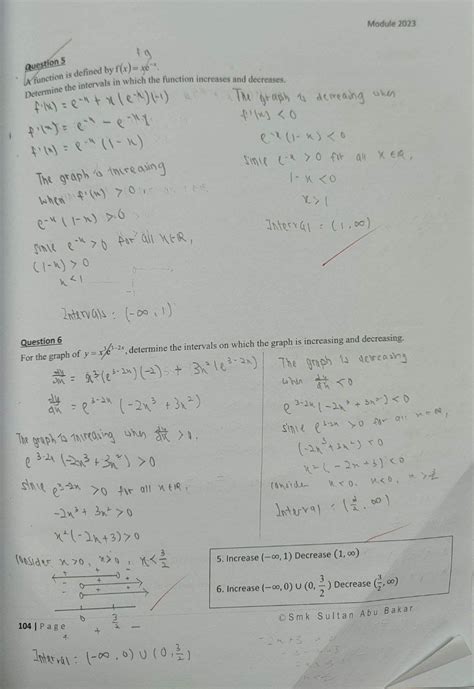 Module 2023
Question 5
A function is defined by f(x) = xe⁻ˣ.
Determine the intervals in which the function increases and decreases.
f'(x) = e⁻ˣ + x(e⁻ˣ)(-1)
f'(x) = e⁻ˣ - e⁻ˣx
f'(x) = e⁻ˣ (1-x)
The graph is increasing
when f'(x) > 0
e⁻ˣ (1-x) > 0
since e⁻ˣ > 0 for all x∈R,
(1-x) > 0
x < 1
Intervals : (-∞, 1)
The graph is decreasing when
f'(x) < 0
e⁻ˣ (1-x) < 0
since e⁻ˣ > 0 for all x∈R,
1-x < 0
x > 1
Interval = (1, ∞)
Question 6
For the graph of y = x³e³⁻²ˣ, determine the intervals on which the graph is increasing and decreasing.
dy/dx = x³(e³⁻²ˣ)(-2) + 3x²(e³⁻²ˣ)
dy/dx = e³⁻²ˣ (-2x³ + 3x²)
The graph is increasing when dy/dx > 0,
e³⁻²ˣ (-2x³ + 3x²) > 0
since e³⁻²ˣ > 0 for all x∈R,
-2x³ + 3x² > 0
x²(-2x+3) > 0
consider x > 0, x > 0, x < 3/2
0 3/2
+ -
Interval: (-∞, 0) ∪ (0, 3/2)
The graph is decreasing
when dy/dx < 0
e³⁻²ˣ (-2x³ + 3x²) < 0
since e³⁻²ˣ > 0 for all x∈R,
(-2x³ + 3x²) < 0
x²(-2x+3) < 0
consider x < 0, x < 0, x > 3/2
Interval = (3/2, ∞)
5. Increase (-∞, 1) Decrease (1, ∞)
6. Increase (-∞, 0) ∪ (0, 3/2) Decrease (3/2, ∞)
104 | Page
©Smk Sultan Abu Bakar